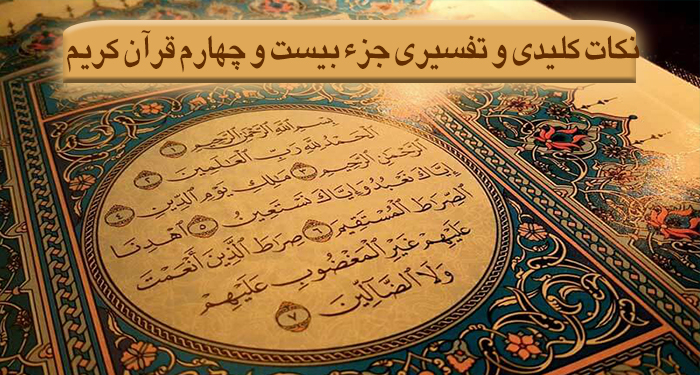 نکات کلیدی و تفسیری جزء بیست و چهارم قرآن کریم
بِسْمِ اللَّهِ الرَّحْمَٰنِ الرَّحِيمِ ١
الْحَمْدُ لِلَّهِ رَبِّ الْعَٰلَمِينَ ٢
الرَّحْمَٰنِ الرَّحِيمِ ٣ مَٰلِكِ يَوْمِ الدِّينِ ٤
إِيَّاكَ نَعْبُدُ وَإِيَّاكَ نَسْتَعِينُ ٥ اهْدِنَا
الصِّرَٰطَ الْمُسْتَقِيمَ ٦ صِرَٰطَ الَّذِينَ أَنْعَمْتَ
عَلَيْهِمْ غَيْرِ الْمَغْضُوبِ عَلَيْهِمْ
وَلَا الضَّآلِّينَ ٧